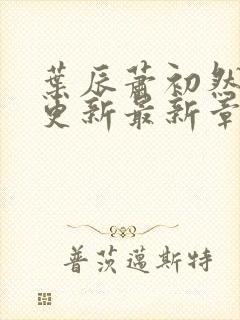 葉辰蕭初然
更新最新章
普茨邁斯特